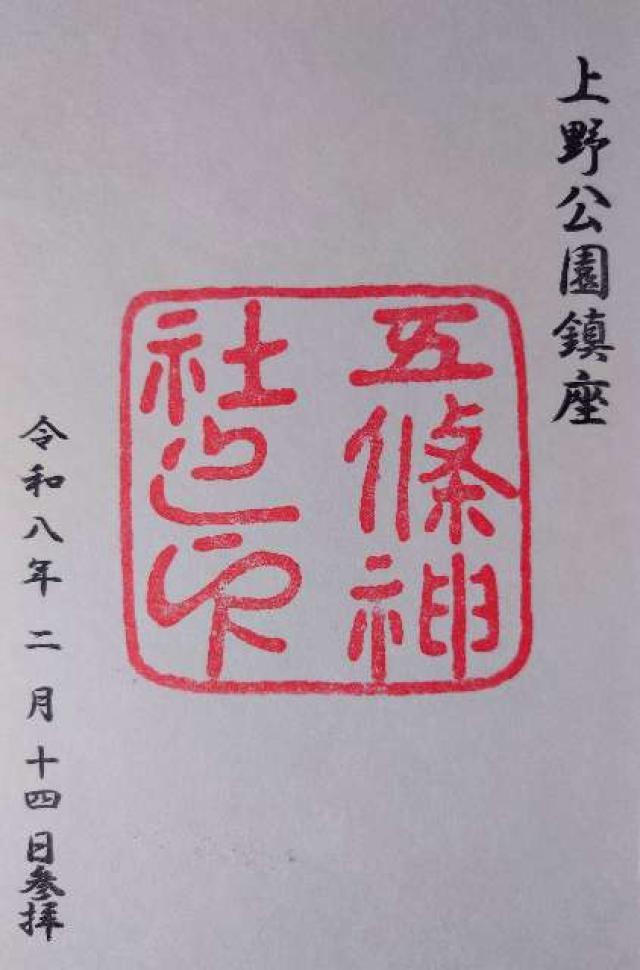 上野公園鎮座
五條神
社之印
令和八年二月十四日参拝